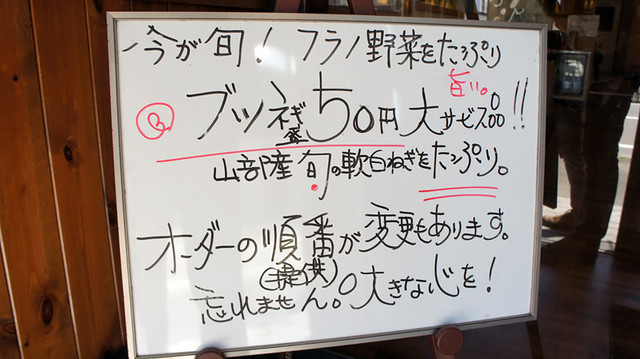 今が旬! フラノ野菜をたっぷり
旨い。
ブツネギ 50円 大サービス品!!
山部産 旬の軟白ねぎをたっぷり。
オーダーの順番が変更もあります。
(提供)
忘れません。大きな心を!